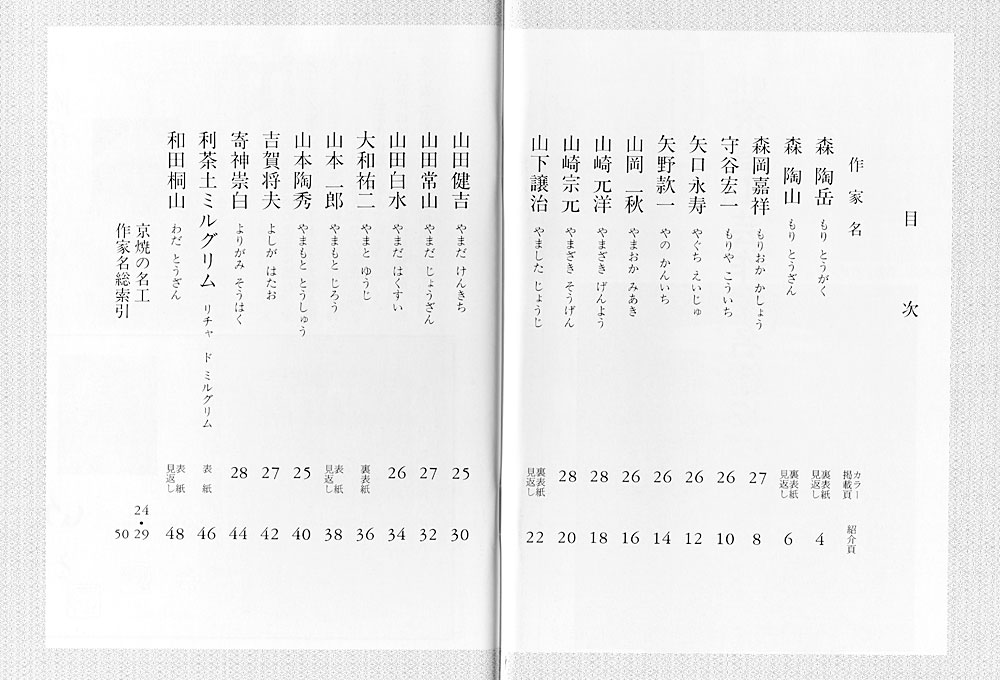 目次
作家名 カラー掲載頁 紹介頁
森 陶岳 もり とうがく 裏表紙見返し 4
森 陶山 もり とうざん 裏表紙見返し 6
森岡嘉祥 もりおか かしょう 27 8
守谷宏一 もりや こういち 26 10
矢口永寿 やぐち えいじゅ 26 12
矢野款一 やの かんいち 26 14
山岡一秋 やまおか みあき 26 16
山崎元洋 やまざき げんよう 28 18
山崎宗元 やまざき そうげん 28 20
山下譲治 やました じょうじ 裏表紙見返し 22
山田健吉 やまだ けんきち 25 30
山田常山 やまだ じょうざん 27 32
山田白水 やまだ はくすい 26 34
大和祐二 やまと ゆうじ 裏表紙 36
山本一郎 やまもと じろう 表紙見返し 38
山本陶秀 やまもと とうしゅう 25 40
吉賀将夫 よしが はたお 27 42
寄神崇白 よりがみ そうはく 28 44
利茶土ミルグリム リチャ ド ミルグリム 表紙 46
和田桐山 わだ とうざん 表紙見返し 48
京焼の名工 24・29
作家名総索引 50